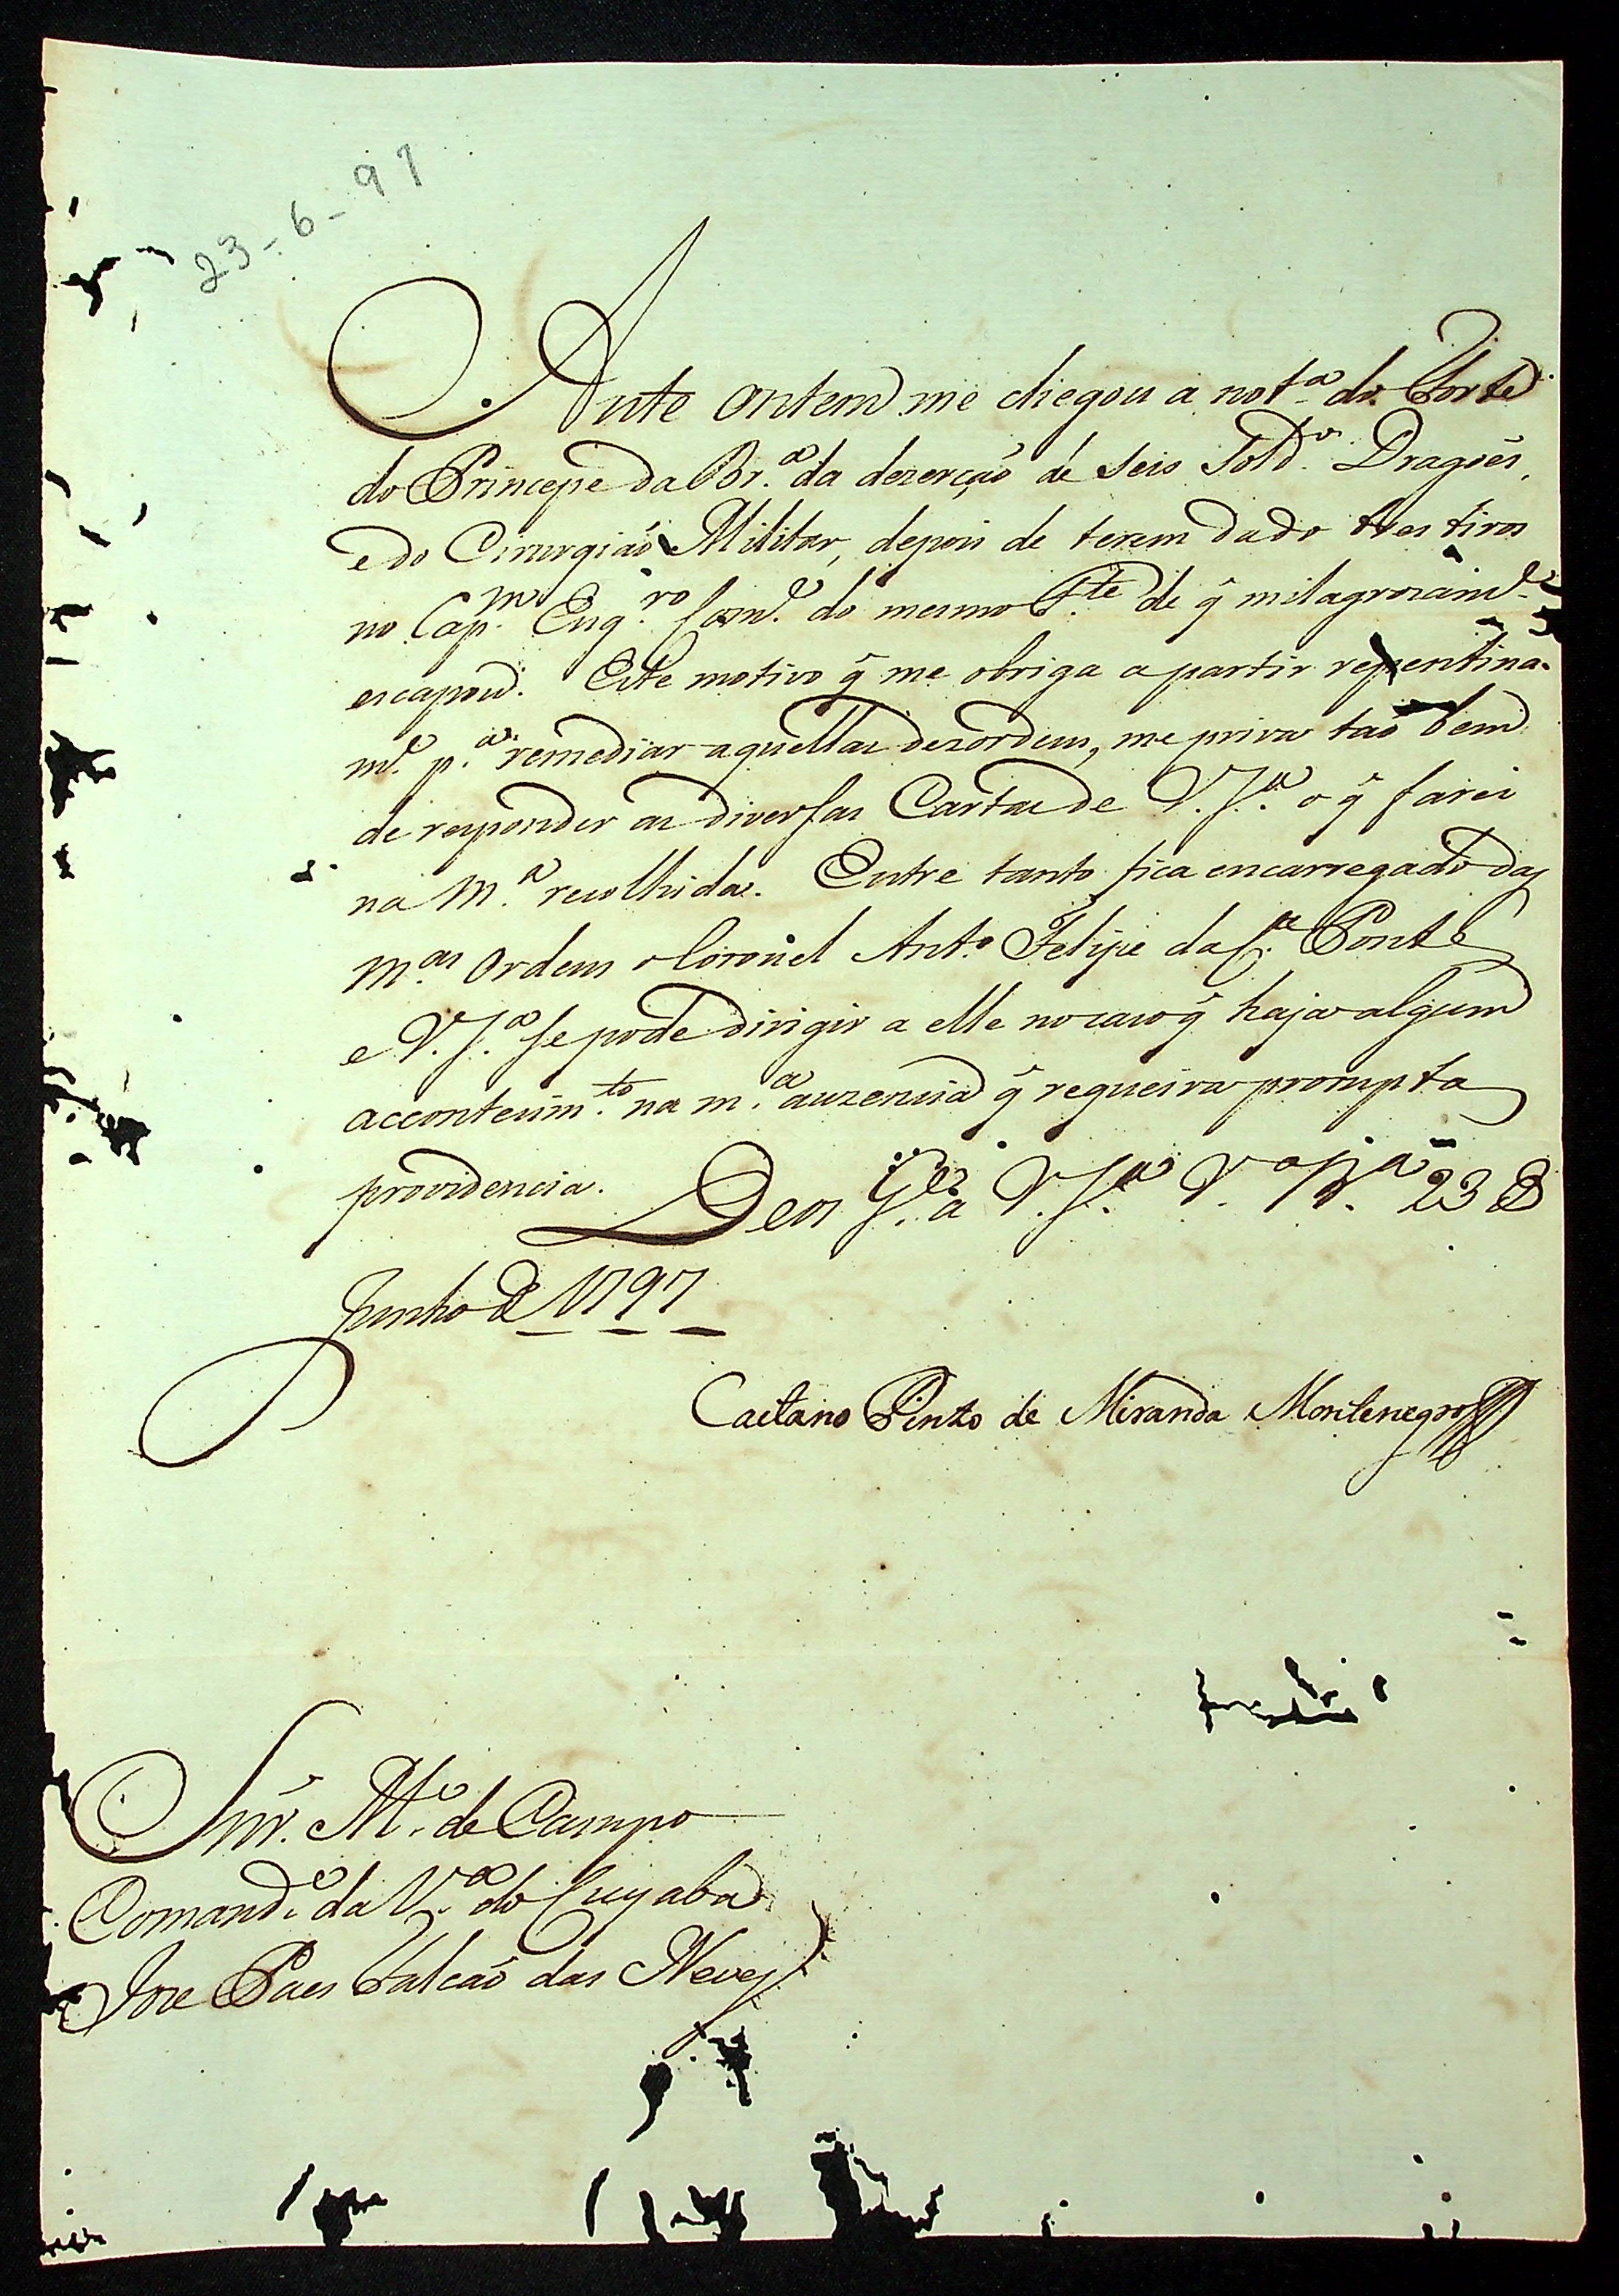 23-6-97
Ante ontem me chegou a not.ª do Forte
do Princepe da Br.ª da dezerçaõ de seis Sold.os Dragoẽs,
e do Cirurgiaõ Militar, depois de terem dado tres tiros
no Cap.m Eng.ro Com.e do mesmo F.te de q̃ milagrozam.e
escapou. Este motivo q̃ me obriga a partir repentina-
m.e p.ª remediar aquellas dezordens, me priva taõ bem
de responder as diversas Cartas de V. S.ª o q̃ farei
na m.ª recolhida. Entre tanto fica encarregado das
m.as Ordens o Coronel Ant.o Felipe da C.ª Ponte
e V. S.ª se pode dirigir a elle no cazo q̃ haja algum
acconteum.to na m.ª auzencia q̃ requeira prompta
providencia. Deos G.e a V. S.ª V.ª B.ª 23 de
Junho de 1797
Caetano Pinto de Miranda Montenegro
Snr. M.e de Campo
Comand.e da V.ª do Cuyaba
Joze Paes Falcaõ das Neves